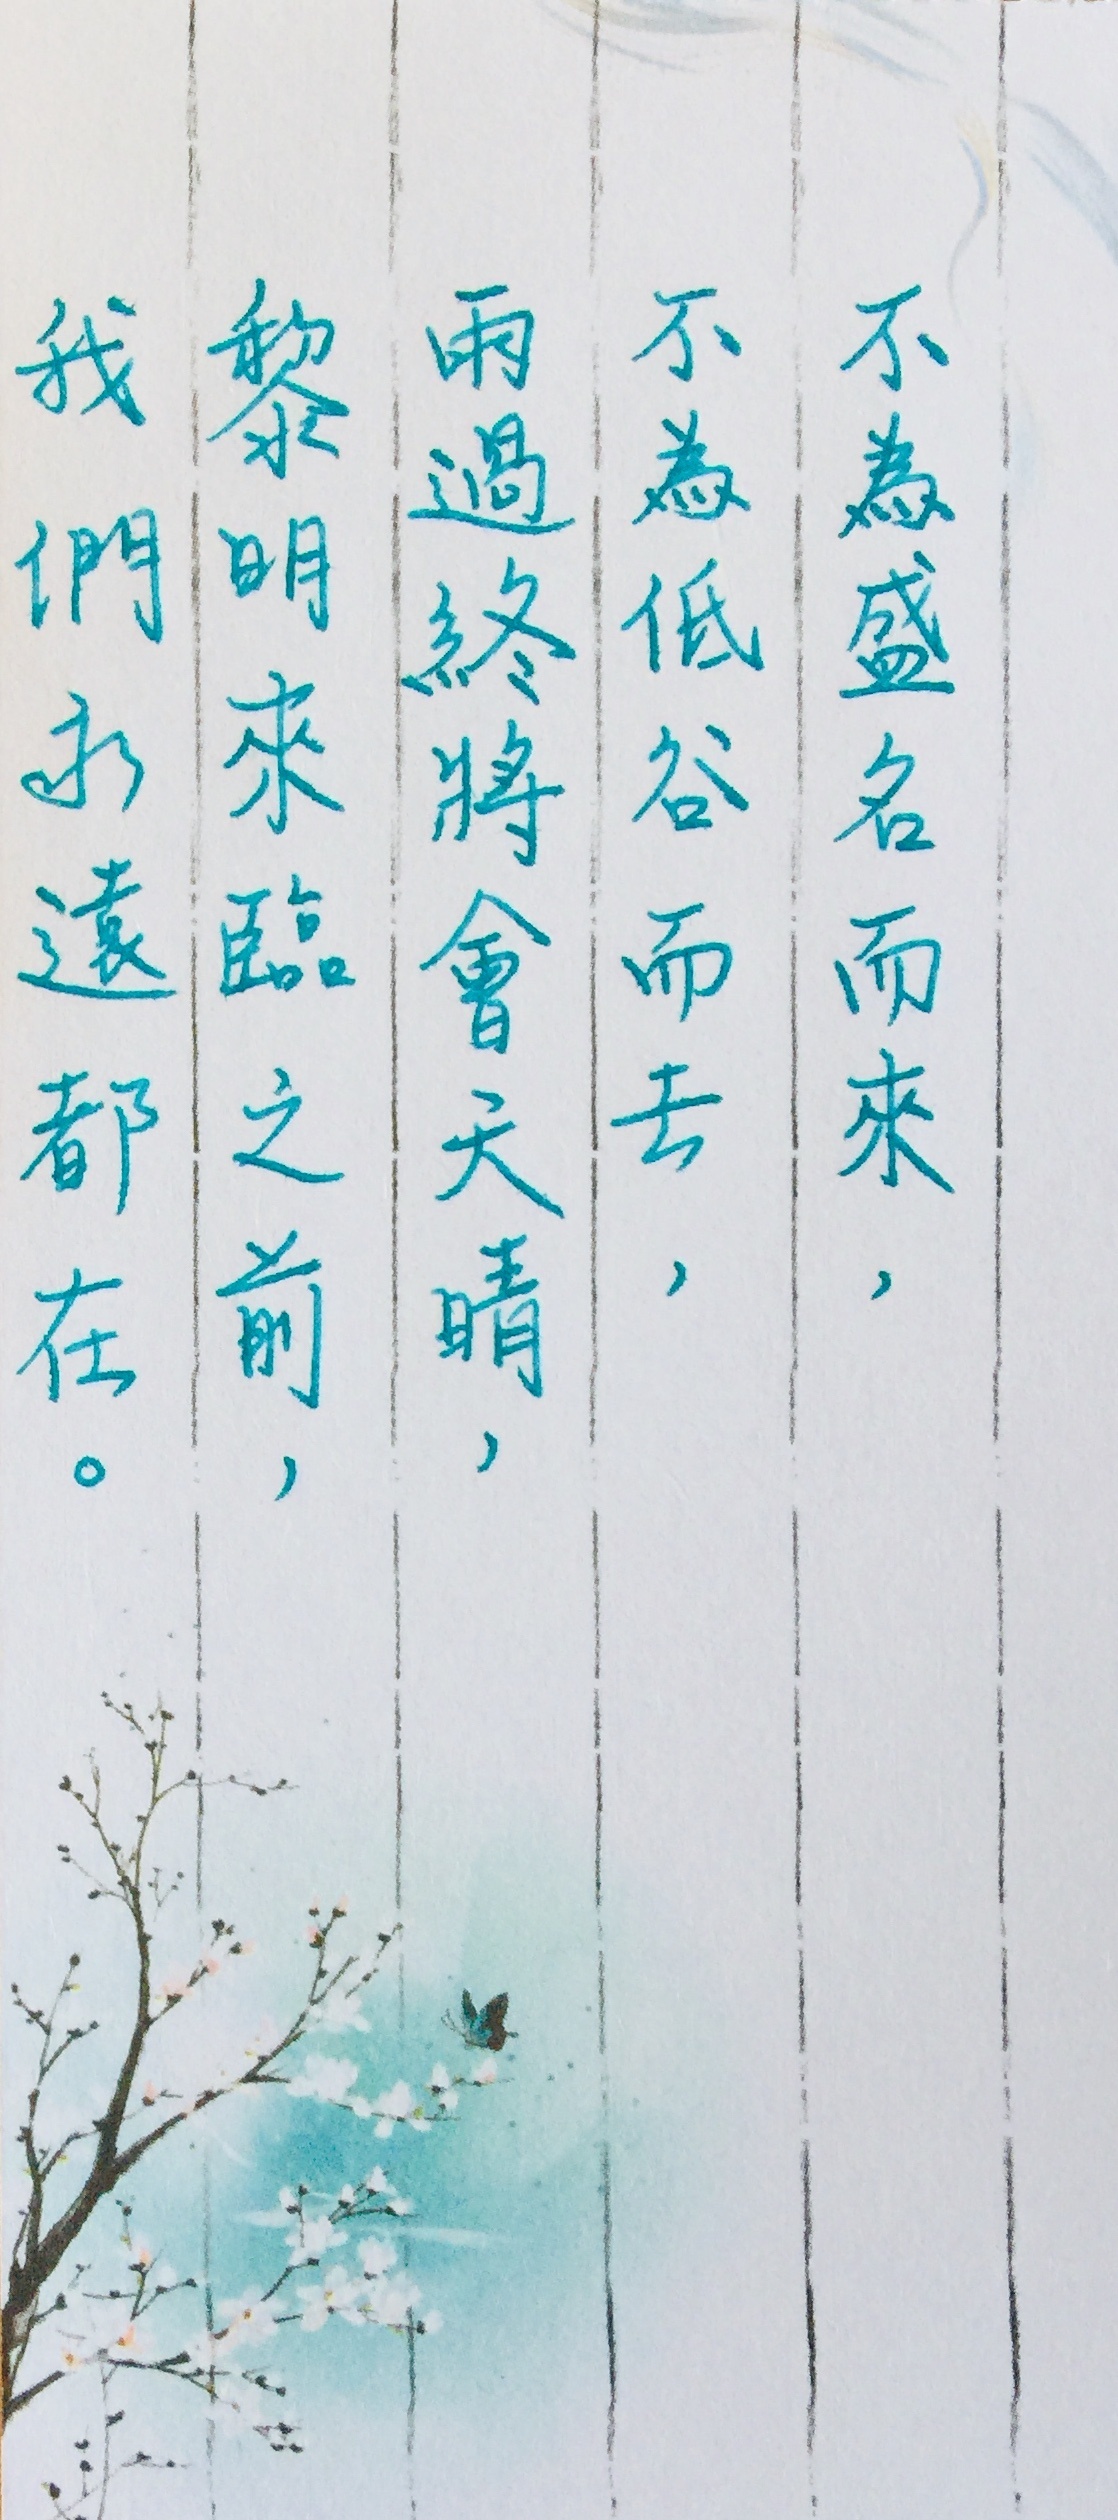 不為盛名而來，
不為低谷而去，
雨過終將會天晴，
黎明來臨之前，
我們永遠都在。